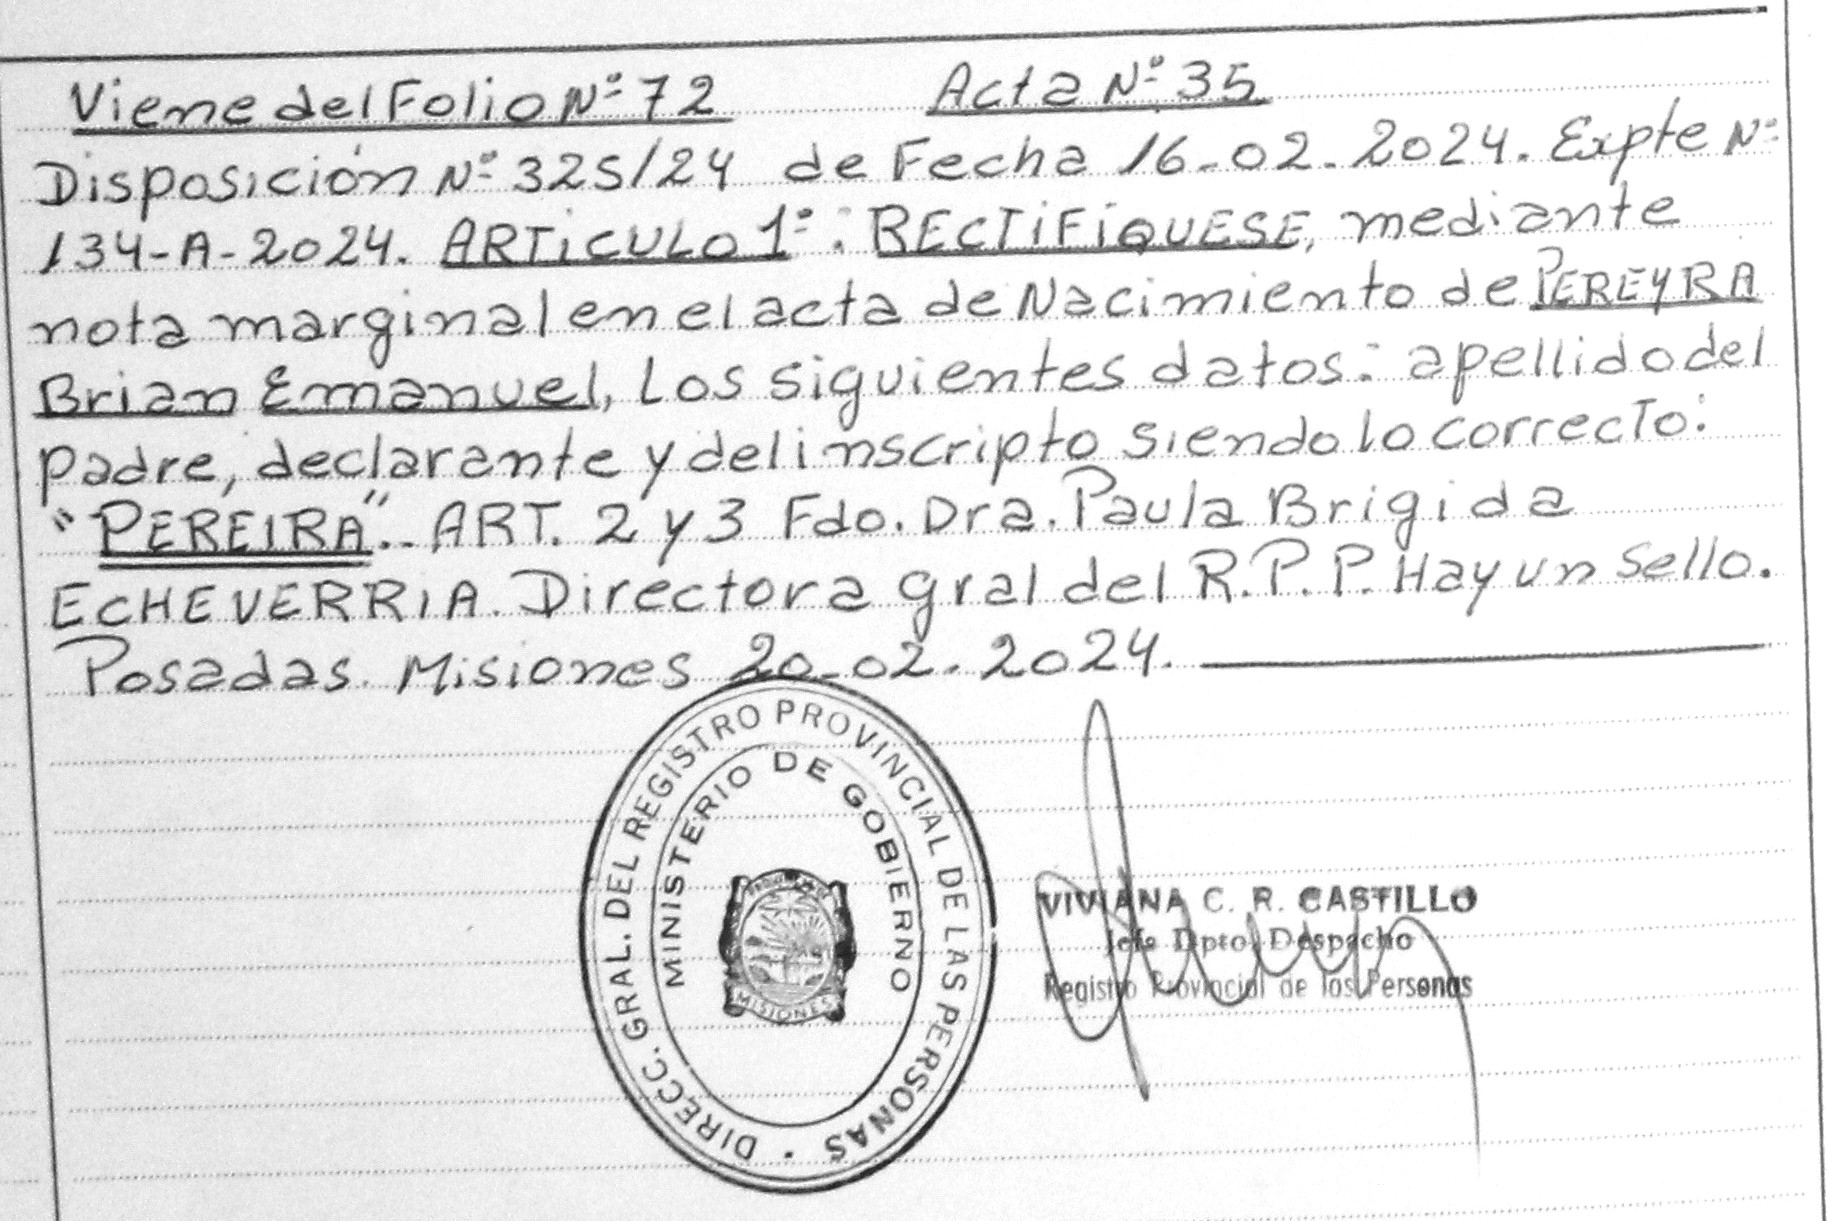 Viene del Folio Nº 72 Acta Nº 35
Disposición Nº 325/24 de Fecha 16-02-2024. Expte Nº
134-A-2024. ARTICULO 1º: RECTIFIQUESE, mediante
nota marginal en el acta de Nacimiento de PEREYRA
Brian Emanuel, Los siguientes datos: apellido del
padre, declarante y del inscripto siendo lo correcto:
"PEREIRA".. ART. 2 y 3 Fdo. Dra. Paula Brigida
ECHEVERRIA. Directora gral del R.P.P. Hay un Sello.
Posadas. Misiones 20-02-2024.
DIRECC. GRAL. DEL REGISTRO PROVINCIAL DE LAS PERSONAS
MINISTERIO DE GOBIERNO
MISIONES
VIVIANA C. R. CASTILLO
Jefe Dpto. Despacho
Registro Provincial de las Personas